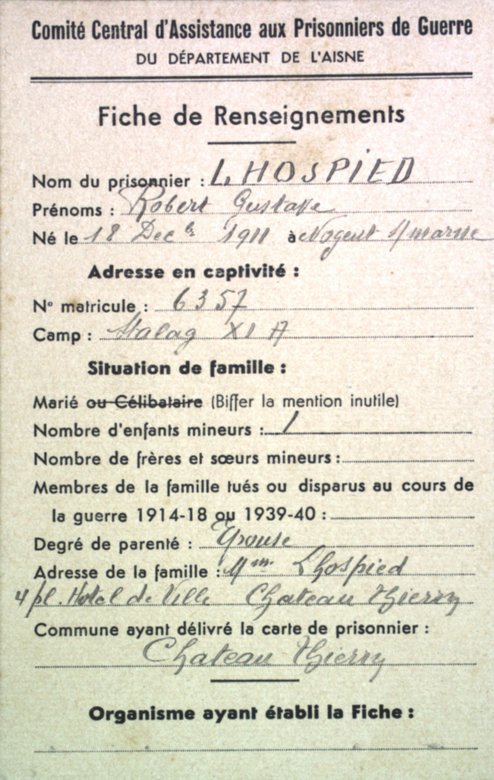 Comité Central d'Assistance aux Prisonniers de Guerre
DU DÉPARTEMENT DE L'AISNE
Fiche de Renseignements
Nom du prisonnier : LHOSPIED
Prénoms : Robert Gustave
Né le 18 Decbr 1911 à Nogent s/marne
Adresse en captivité :
No matricule : 6357
Camp : Stalag XI A
Situation de famille :
Marié ou Célibataire (Biffer la mention inutile)
Nombre d'enfants mineurs : 1
Nombre de frères et sœurs mineurs :
Membres de la famille tués ou disparus au cours de
la guerre 1914-18 ou 1939-40 :
Degré de parenté : Epouse
Adresse de la famille : Mme Lhospied
4 pl. Hotel de Ville Chateau Thierry
Commune ayant délivré la carte de prisonnier :
Chateau Thierry
Organisme ayant établi la Fiche :